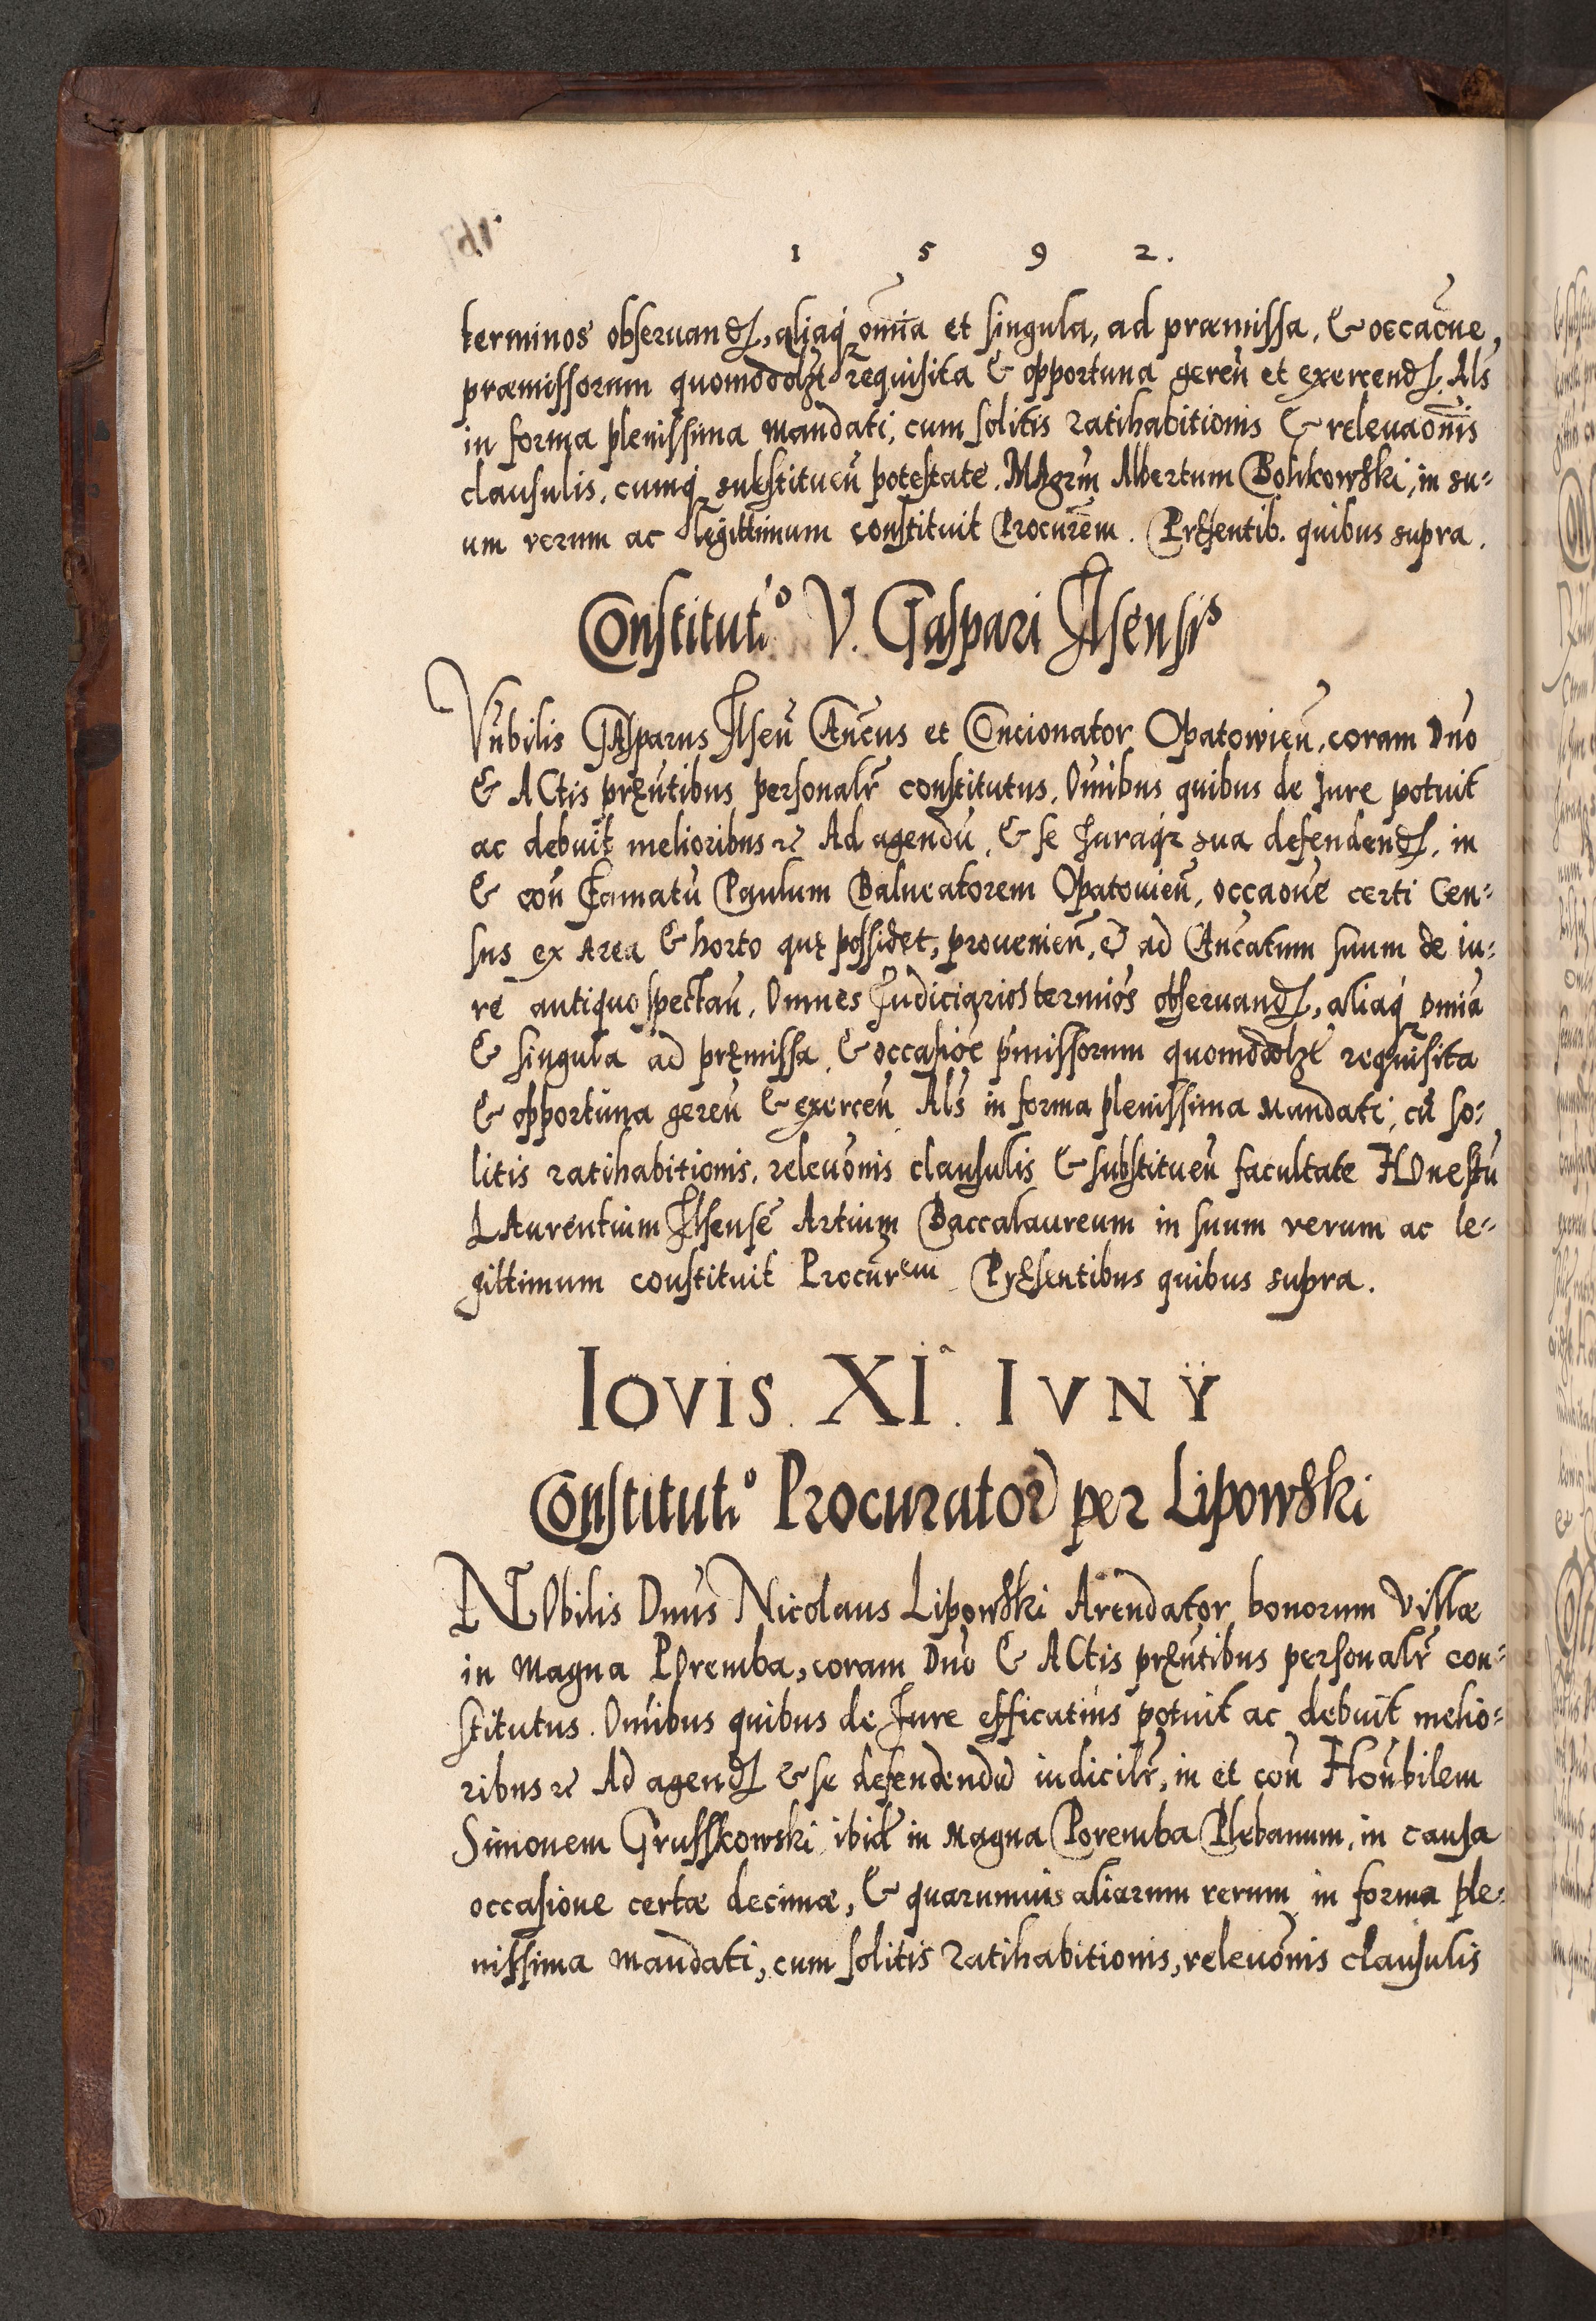 1 5 9 2.
terminos observand, aliaq omia et singula, ad præmissa, & occacne,
præmissorum quomodolzt requisita & opportuna gereñ et exercend. Als
in forma plenissima mandati, cum solitis ratihabitionis & relevaonis
clausulis, cumq substitueñ potestate. MAgrm Albertum Bolikowski, in su-
um verum ac legittimum constituit Procurem. Pręsentib. quibus supra.
Constitutio V. Gaspari Ilsensis
Vnbilis GAsparus Ilseñ CAncus et Concionator Opatovieñ, coram Dno
& ACtis pręntibus personalr constitutus, Omibus quibus de Jure potuit
ac debuit melioribus etc Ad agendū, & se Juraqz sua defendend, in
& con Famatū Paulum Balneatorem Opatovieñ, occaone certi Cen-
sus ex Area & horto quę possidet, provenieñ, & ad CAncatum suum de iu-
re antiquo spectañ, Omnes Judiciarios termios observand, aliaq omia
& singula ad pręmissa, & occasioe pmissorum quomodolzt requisita
& opportuna gereñ & exerceñ Als in forma plenissima Mandati, cū so-
litis ratihabitionis, relevonis clausulis & substitueñ facultate HOnestū
LAurentium Ilsensē Artium Baccalaureum in suum verum ac le-
gittimum constituit Procurem Pręsentibus quibus supra.
IOVIS. XI. IVNŸ
Constitutio Procurator per Lipowski
NObilis Dnus Nicolaus Lipowski Arendator bonorum Villæ
in Magna POremba, coram Dno & ACtis pręntibus personalr con-
stitutus. Omibus quibus de Jure efficatius potuit ac debuit melio-
ribus etc Ad agend & se defendendū iudicilr, in et con Honbilem
Simonem Grusskowski ibid in Magna Poremba Plebanum, in causa
occasione certæ decimæ, & quarumvis aliarum rerum in forma ple-
nissima mandati, cum solitis ratihabitionis, relevonis clausulis